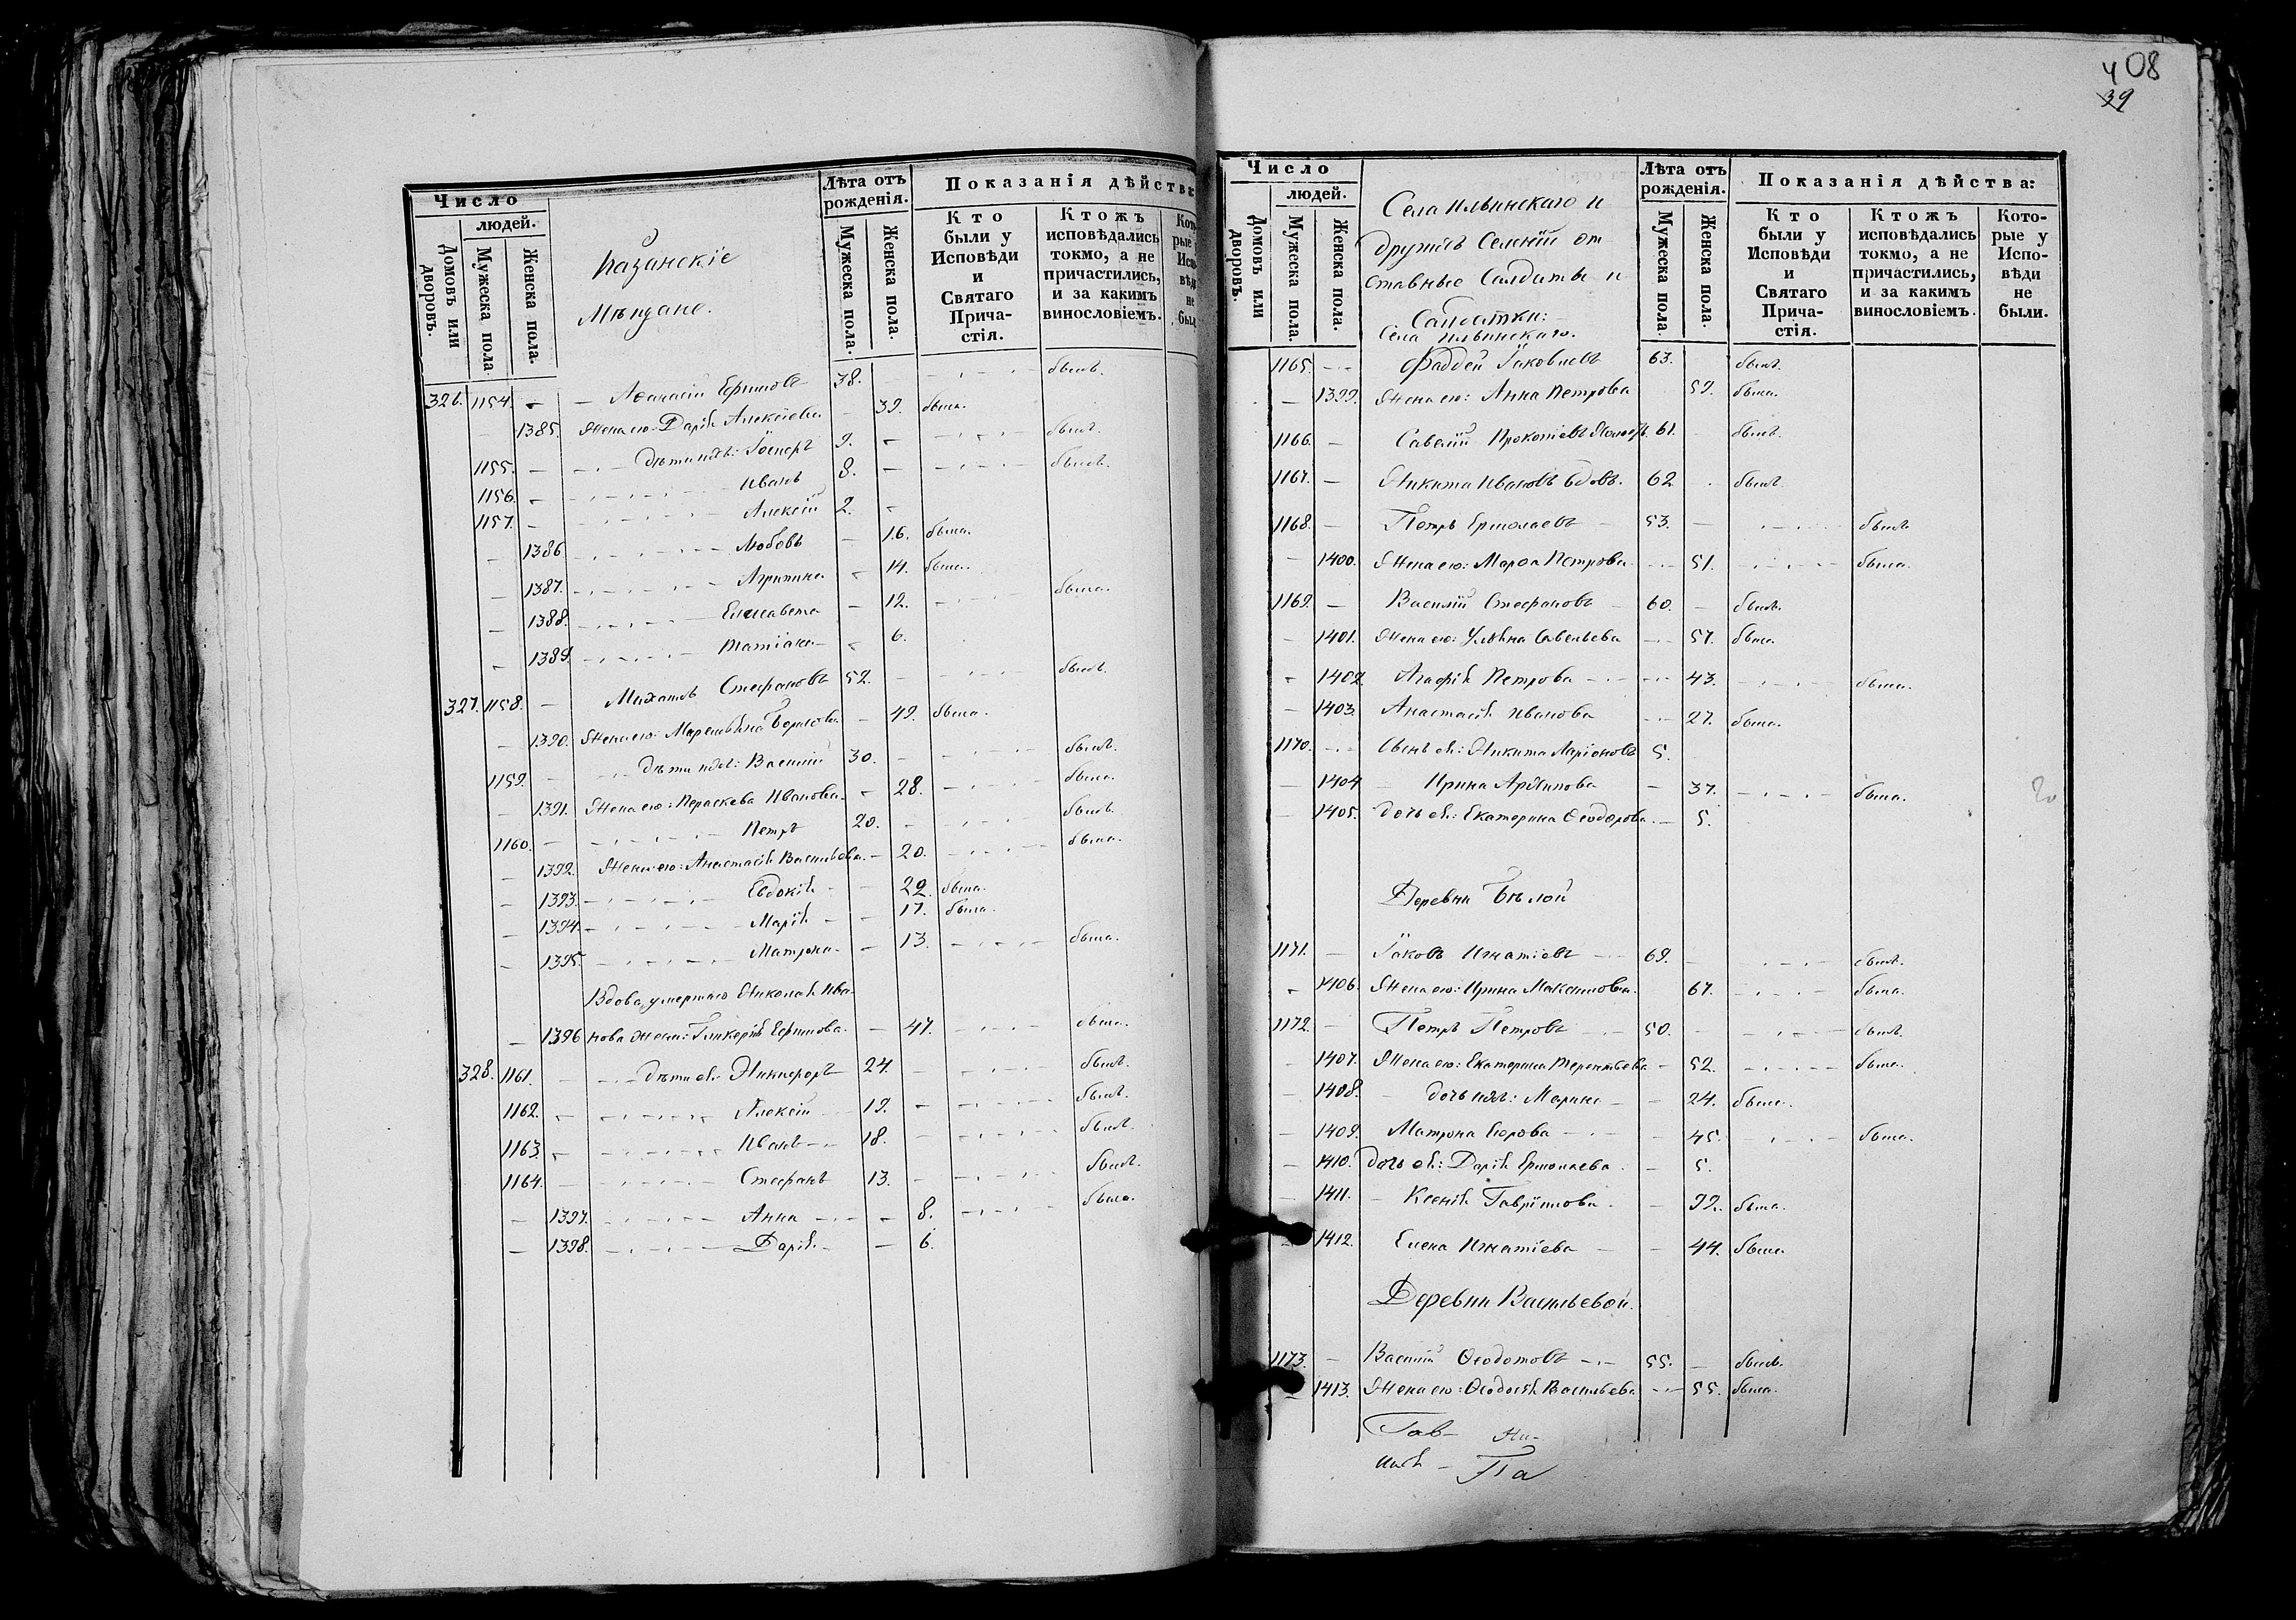 408
39
Число
людей.
Домовъ или дворовъ.
Мужеска пола.
Женска пола.
Казанскіе
Мѣщане.
Лѣта отъ рожденія.
Мужеска пола.
Женска пола.
Показанія дѣйства:
Кто были у Исповѣди и Святаго Причастія.
Ктожъ исповѣдались токмо, а не причастились, и за какимъ винословіемъ.
326. 1154. Афанасій Ефимовъ 38. былъ.
1385. Жена его: Дарія Алексіева 39. была.
1155. дѣти ихъ: 9. былъ.
1156. Иванъ 8. былъ.
1157. Алексій 2.
1386. Любовь 16. была.
1387. Агрипина 14. была.
1388. Елисавета 12. была.
1389. Татіана 6.
327. 1158. Михаилъ Стефановъ 52. былъ.
1390. Жена его: 49. была.
1159. дѣти ихъ: Василій 30. былъ.
1391. Жена его: Параскева Иванова 28. была.
1160. Петръ 20. былъ.
1392. Жена его: Анастасія Васильева 20. была.
1393. Евдокія 22. была.
1394. Марія 17. была.
1395. Матрона 13. была.
Вдова, умершаго Николая Ива-
1396 нова жена: Гликерія Ефимова 47. была.
328. 1161. дѣти ея: Никифоръ 24. былъ.
1162. Алексій 19. былъ.
1163. Иванъ 18. былъ.
1164. Стефанъ 13. былъ.
1397. Анна 8. была.
1398. Дарія 6.
Число
людей.
Домовъ или дворовъ.
Мужеска пола.
Женска пола.
Села Ильинскаго и
другихъ Селеній от
ставные Салдаты и
Салдатки:
Села Ильинскаго.
Лѣта отъ рожденія.
Мужеска пола.
Женска пола.
Показанія дѣйства:
Кто были у Исповѣди и Святаго Причастія.
Ктожъ исповѣдались токмо, а не причастились, и за какимъ винословіемъ.
Которые у Исповѣди не были.
1165. Фаддей Іаковлевъ 63. былъ.
1399. Жена его: Анна Петрова 59. была.
1166. Савелій Прокопіевъ 61. былъ.
1167. Никита Ивановъ вдовъ. 62 былъ.
1168. Петръ Ермолаевъ 53. былъ
1400. Жена его: Марѳа Петрова 51. была.
1169. Василій Стефановъ 60. былъ.
1401. Жена его: Уліяна Савельева 57. была
1402 Агафія Петрова 43. была.
1403. Анастасія Иванова 27. была.
1170. Сынъ ея: Никита Ларіоновъ 5.
1404 Ирина Архипова 37. была.
1405. дочь ея: Екатерина Ѳеодорова 5.
Деревни Бѣлой
1171. Іаковъ Игнатіевъ 69. былъ.
1406. Жена его: Ирина Максимова 67. была.
1172. Петръ Петровъ 50. былъ.
1407. Жена его: Екатерина Терентьева 52. была.
1408. дочь ихъ: Марина 24. была.
1409. Матрона Егорова 45. была.
1410. Дочь ея: Дарія Ермолаева 5.
1411. Ксенія Гавріилова 92. была.
1412. Елена Игнатіева 44. была.
Деревни Васильевой.
1173. Василій Ѳеодотовъ 55. былъ.
1413. Жена его: Ѳеодосія Васильева 55. была.
Гав- Ни-
Па